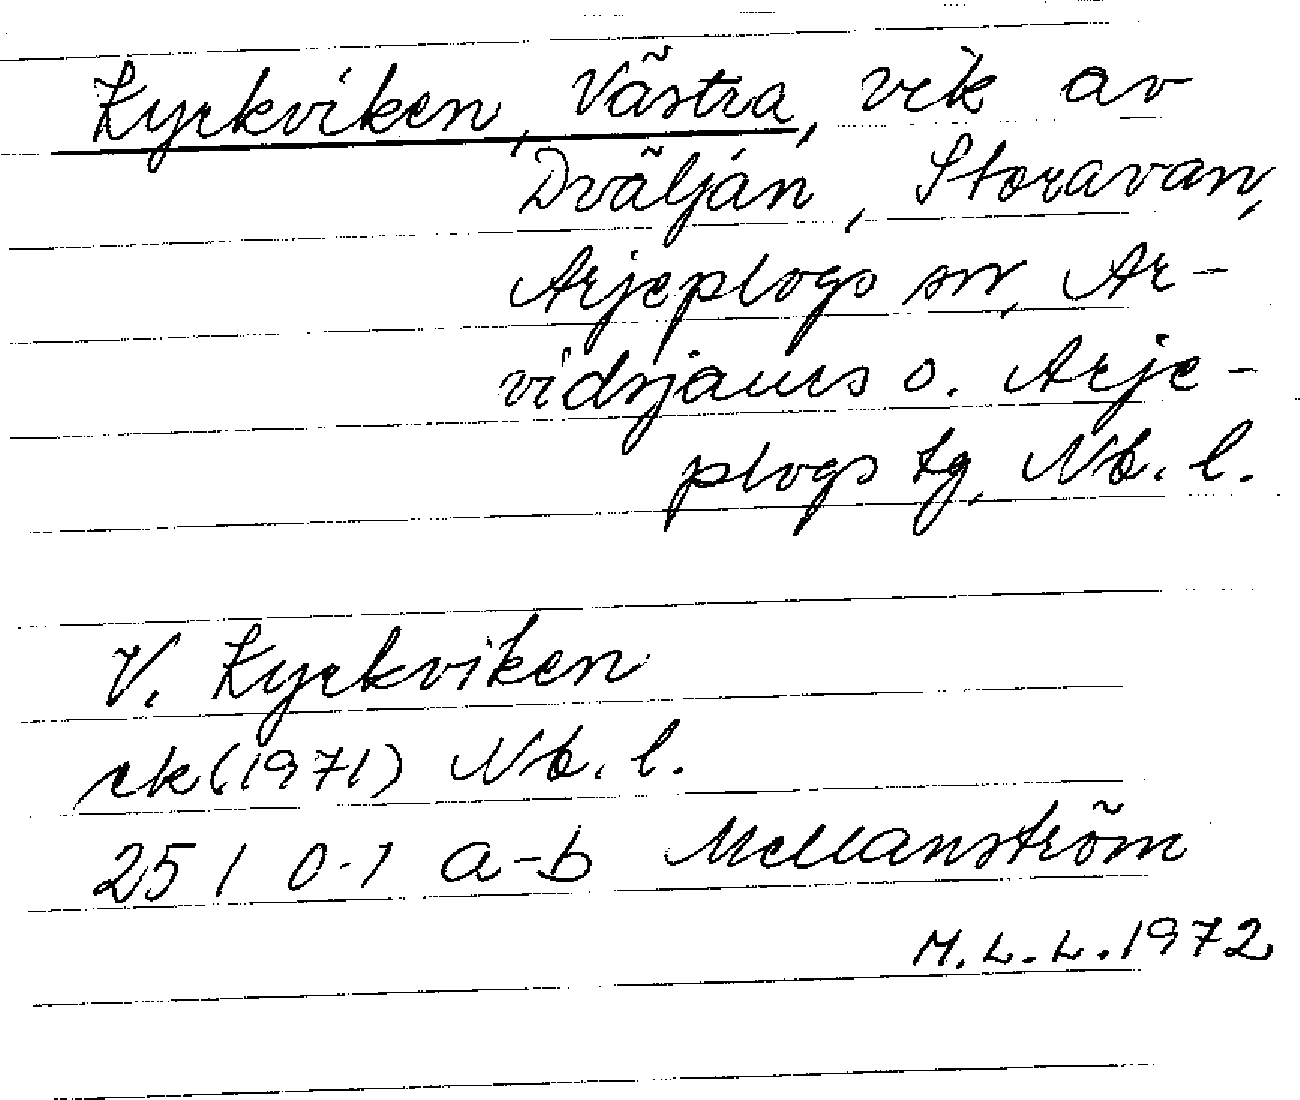 Kyrkviken, Västra, vik av
Dvälján, Storavan,
Arjeplogs sn, Ar-
vidsjaurs o. Arje-
plogs tg, Nb. l.
V. Kyrkviken
ek (1971) Nb. l.
25 I 0-1 a-b Mellanström
M.L.L. 1972